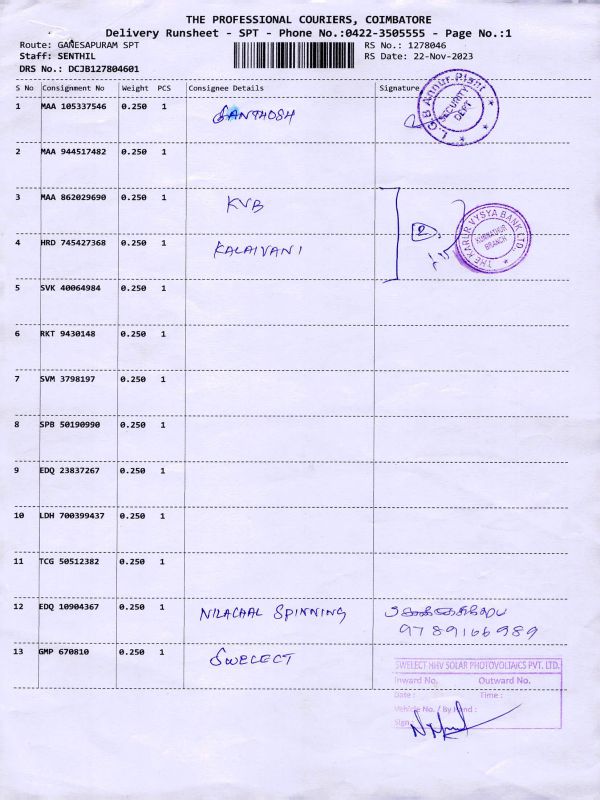 THE PROFESSIONAL COURIERS, COIMBATORE
Delivery Runsheet - SPT - Phone No.:0422-3505555 - Page No.:1
Route: GANESAPURAM SPT RS No.: 1278046
Staff: SENTHIL RS Date: 22-Nov-2023
DRS No.: DCJB127804601
S No Consignment No Weight PCS Consignee Details Signature
1 MAA 105337546 0.250 1 SANTHOSH L.G.B Annur Plant SECURITY DEPT
2 MAA 944517482 0.250 1
3 MAA 862029690 0.250 1 KVB
THE KARUR VYSYA BANK LTD. BRANCH
4 HRD 745427368 0.250 1 KALAIVANI
5 SVK 40064984 0.250 1
6 RKT 9430148 0.250 1
7 SVM 3798197 0.250 1
8 SPB 50190990 0.250 1
9 EDQ 23837267 0.250 1
10 LDH 700399437 0.250 1
11 TCG 50512382 0.250 1
12 EDQ 10904367 0.250 1 NILACAAL SPINNING
9789166989
13 GMP 670810 0.250 1 SWELECT
SWELECT HHV SOLAR PHOTOVOLTAICS PVT. LTD.
Inward No. Outward No.
Date : Time :
Vehicle No. / By Hand :
Sign